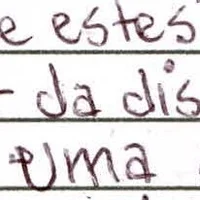 e estes
- da dis
uma